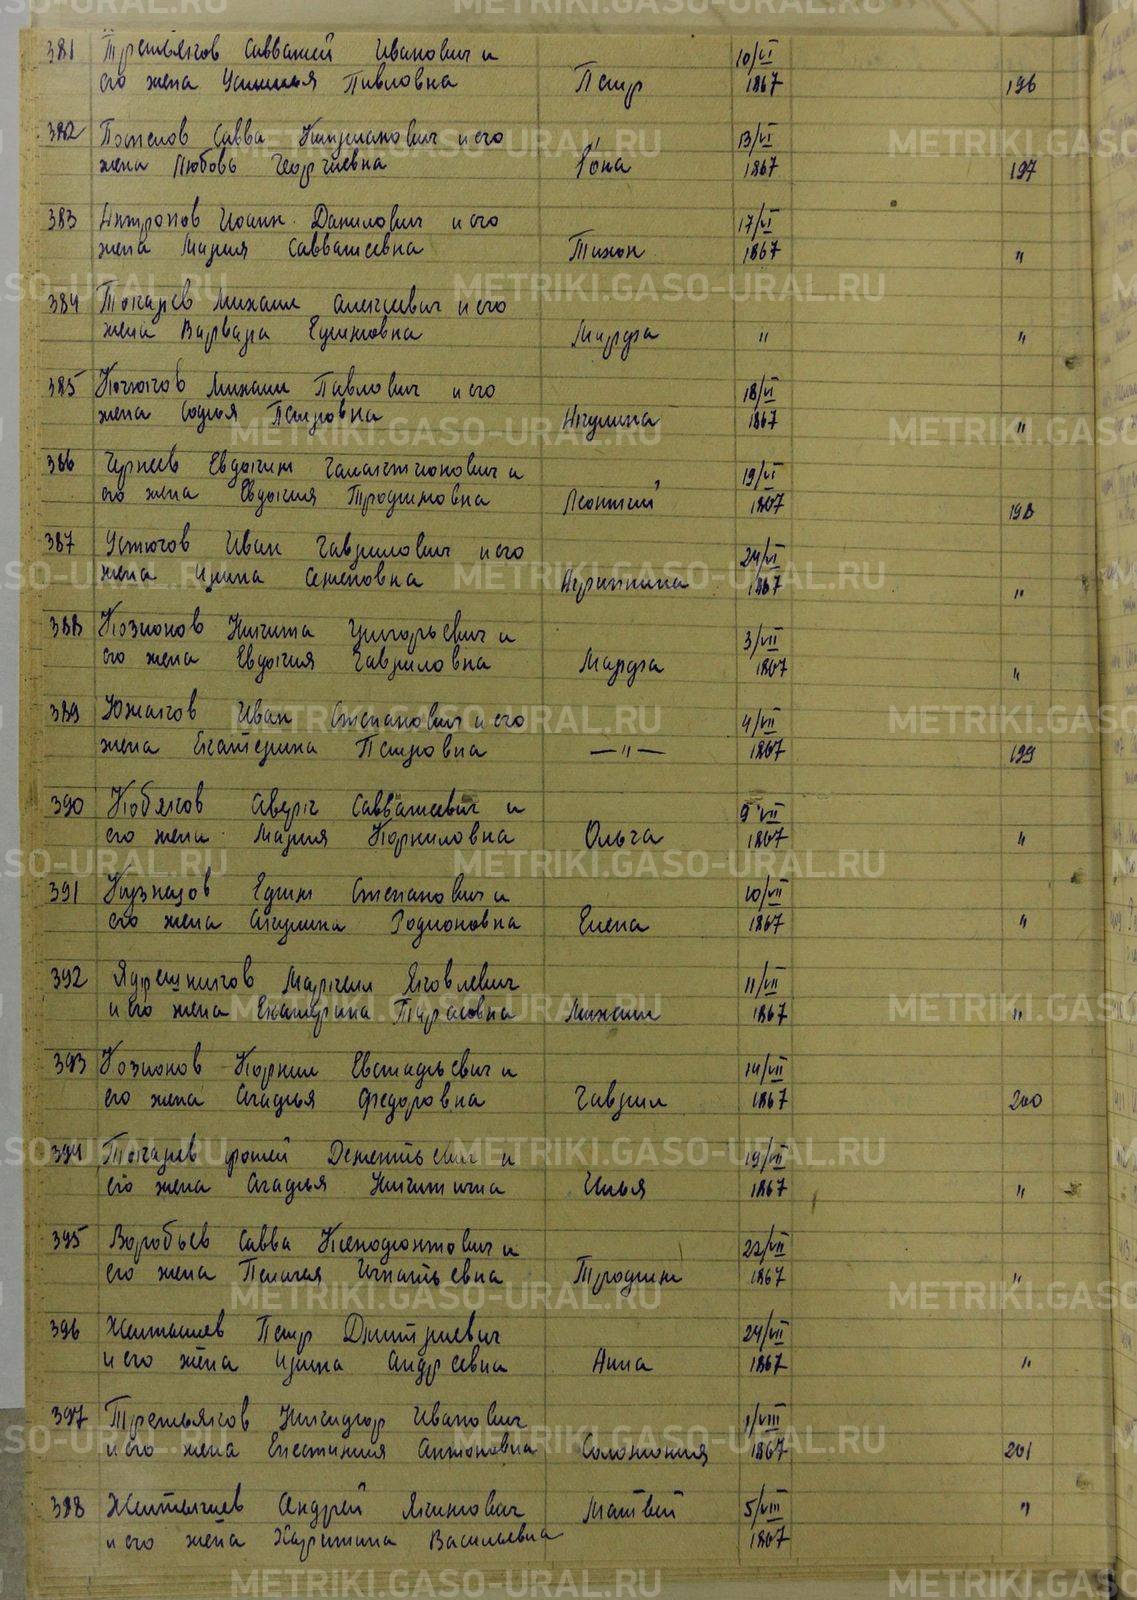 381 Третьяков Савватей Иванович и
его жена Устинья Павловна Петр 10/VI 1867 196
382 Поспелов Савва Киприанович и его
жена Любовь Георгиевна 13/VI 1867 197
383 Антропов Иоанн Данилович и его
жена Мария Савватеевна Тихон 17/VI 1867 "
384 Токарев Михаил Алексеевич и его
жена Варвара Ефимовна Марфа " "
385 Михаил Павлович и его
жена Софья Петровна Акулина 18/VI 1867 "
386 Чернев Евдоким Галактионович и
его жена Евдокия Трофимовна Леонтий 19/VI 1867 198
387 Устюгов Иван Гаврилович и его
жена Ирина Семеновна Агриппина 24/VI 1867 "
388 Козионов Никита Григорьевич и
его жена Евдокия Гавриловна Марфа 3/VII 1867 "
389 Южаков Иван Степанович и его
жена Екатерина Петровна — " — 4/VII 1867 199
390 Кобяков Аверк Савватеевич и
его жена Мария Корниловна Ольга 9 VII 1867 "
391 Кузнецов Ефим Степанович и
его жена Акулина Родионовна Елена 10/VII 1867 "
392 Ядрешников Маркелл Яковлевич
и его жена Екатерина Тарасовна Михаил 11/VII 1867 "
393 Козионов Корнил Евстафьевич и
его жена Агафья Федоровна Гаврил 14/VII 1867 200
394 Токарев Фотей Дементьевич и
его жена Агафья Никитична Илья 19/VII 1867 "
395 Воробьев Савва Ксенофонтович и
его жена Пелагея Игнатьевна Трофим 22/VII 1867 "
396 Петр Дмитриевич
и его жена Ирина Андреевна Анна 24/VII 1867 "
397 Третьяков Никифор Иванович
и его жена Епестиния Антоновна Соломония 1/VIII 1867 201
398 Андрей Якимович Матвей 5/VIII "
и его жена Харитина Васильевна 1867
METRIKI.GASO-URAL.RU